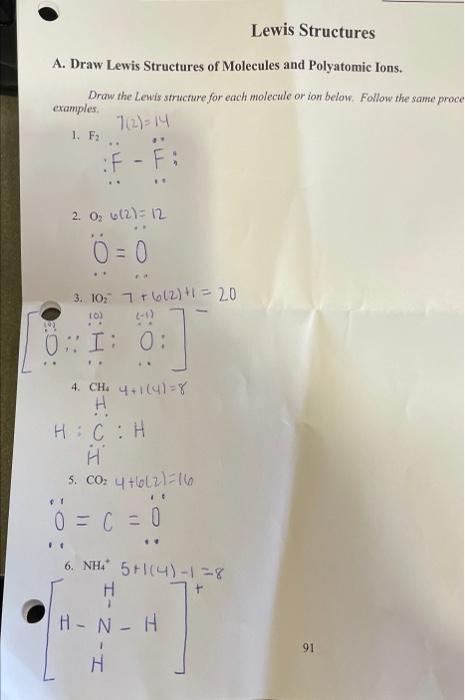 Lewis Structures
A. Draw Lewis Structures of Molecules and Polyatomic Ions.
Draw the Lewis structure for each molecule or ion below. Follow the same proce
examples.
7(2)=14
1. F₂
:F - F:
2. O₂ 6(2)=12
O = O
3. IO₂⁻ 7+6(2)+1 = 20
(0) (0) (-1)
[O :: I : O:]⁻
4. CH₄ 4+1(4)=8
H
H : C : H
H
5. CO₂ 4+6(2)=16
O = C = O
6. NH₄⁺ 5+1(4)-1=8
H
[H - N - H]⁺
H
91